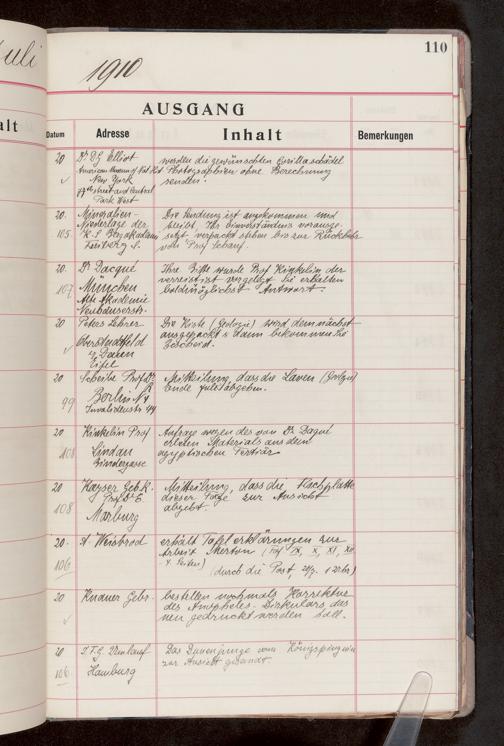 uli
110
1910
AUSGANG
alt
Datum Adresse Inhalt Bemerkungen
20 Dr. D. G. Elliot werden die gewünschten Gorillaschädel
American Museum of Nat. Hist. Photographien ohne Berechnung
New York senden.
77th street and Central
Park West
20. Mineralien- Die Sendung ist angekommen und
Niederlage der bleibt, Ihr Einverständnis vorausge-
105 K. S. Bergakademie setzt, verpackt stehen bis zur Rückkehr
Freiberg S. von Prof
20. Dr Dacqué Ihre Bitte wurde Prof Kinkelin der
107 München verreist ist vorgelegt. Sie erhalten
Alte Akademie baldmöglichst Antwort.
Neuhauserstr.
20 Peters Lehrer Die Kiste (Geologie) wird demnächst
Oberstadtfeld ausgepackt & dann bekommen Sie
b. Daun Bescheid.
Eifel
20 Scheibe Prof Dr. Mitteilung, dass die Laven (Geologie)
99 Berlin N 4 Ende Juli abgehn.
Invalidenstr 44
20 Kinkelin Prof Anfrage wegen des von Dr. Daqué
108 Lindau erbeten Materials aus dem
ägyptischen Tertiär
20 Kayser Geh. R. Mitteilung, dass die Tischplatte
Prof. Dr E. dieser Tage zur Ansicht
108 Marburg abgeht.
20. A Weisbrod erhält Tafelerklärungen zur
106 Arbeit Merton (Taf IX, X, XI, XII
(durch die Post,
20 Knauer Gebr. bestellen nochmals Korrektur
des Zirkulars das
neu gedruckt werden soll.
20 J. F. G. Umlauff Das Dunenjunge vom Königspinguin
106 Hamburg zur Ansicht gesandt